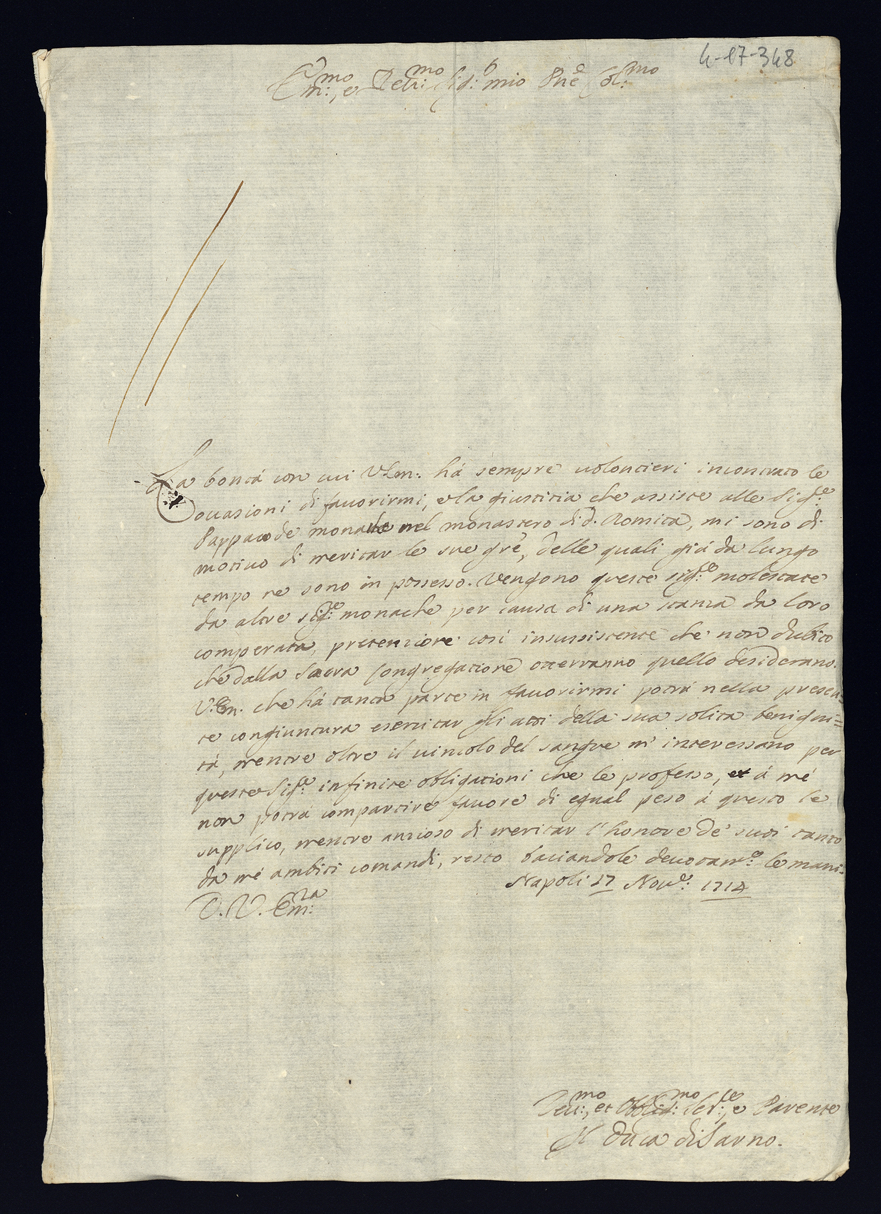 4-17-348
Em:mo, e Rev:mo Sig:r mio Pne Col:mo
La bontà con cui V.Em: hà sempre volontieri incontrato le
occasioni di favorirmi, e la giustitia che assiste alle Sig:re
Pappacode monache nel monastero di d. Romita, mi sono di
motivo di meritar le sue gre, delle quali già da lungo
tempo ne sono in possesso. Vengono queste sig:re molestate
da altre sig:re monache per causa di una stanza da loro
comperata, pretenzione così insussistente che non dubito
che dalla Sacra Congregatione otterranno quello desiderano.
V.Em. che hà tanta parte in favorirmi potrà nella presen=
te congiuntura esercitar gli atti della sua solita benigni=
tà, mentre oltre il vincolo del sangue m'interessano per
queste Sig:re infinite obligationi che le professo, et à mè
non potrà compartire favore di egual peso à questo le
supplico, mentre anzioso di meritar l'honore de' suoi tanto
da mè ambiti comandi, resto baciandole devotam:e le mani.
Napoli 17 Nov:e 1714
D. V. Em:za
Dev:mo, et Obblid:mo Ser:re, e Parente
Il Duca di Sarno.